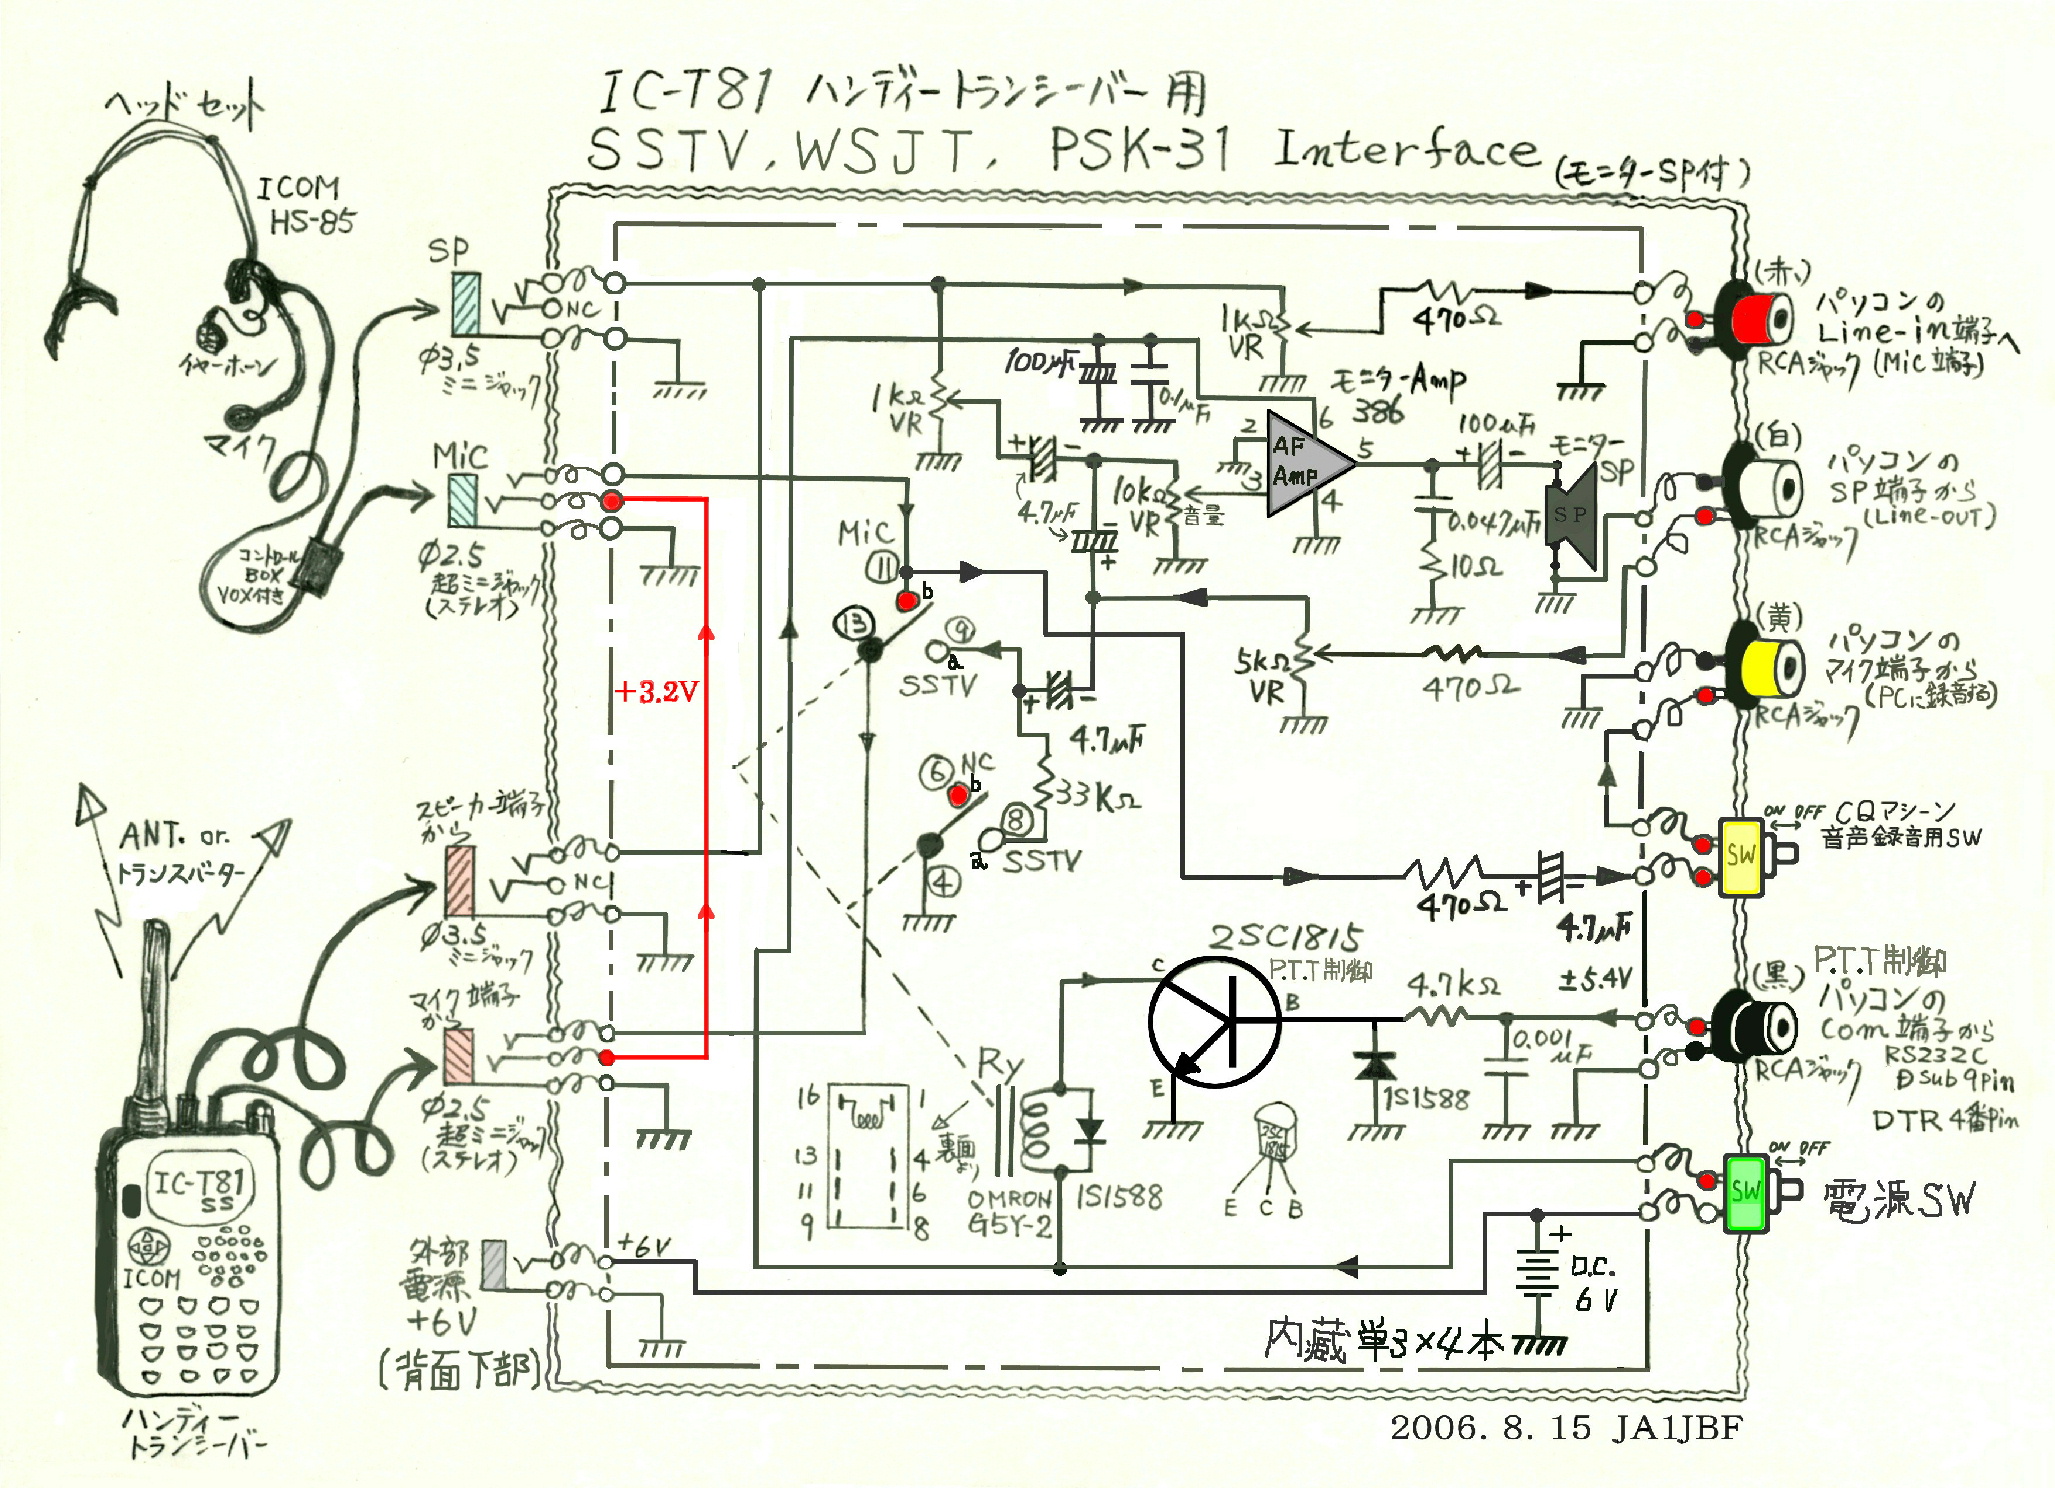 IC-T81 ハンディートランシーバー用
SSTV, WSJT, PSK-31 Interface (モニターSP付)
ヘッドセット
ICOM
HS-85
イヤーホーン
マイク
コントロール
BOX
VOX付き
SP
NC
φ3.5
ミニジャック
MiC
φ2.5
超ミニジャック
(ステレオ)
ANT. or.
トランスバーター
スピーカー端子
から
NC
φ3.5
ミニジャック
マイク端子
から
φ2.5
超ミニジャック
(ステレオ)
IC-T81
SS
ICOM
ハンディー
トランシーバー
外部
電源
+6V
(背面下部)
+6V
+3.2V
1KΩ
VR
470Ω
1KΩ
VR
100μF
0.1μF
モニターAmp
386
2
3
6
5
4
AF
Amp
+ -
4.7μF
-
+
10KΩ
VR
音量
100μF
+ -
モニター
SP
SP
0.047μF
10Ω
MiC
11
b
13
9
a
SSTV
+ -
4.7μF
33KΩ
6
NC
b
8
a
SSTV
4
5KΩ
VR
470Ω
470Ω
+ -
4.7μF
2SC1815
P.T.T制御
C
B
E
4.7KΩ
±5.4V
1S1588
0.001
μF
Ry
16 1
13 4
11 6
9 8
裏面
より
OMRON
G5Y-2
1S1588
2SC
1815
E C B
+
D.C.
6V
内蔵 単3×4本
(赤)
パソコンの
Line-in端子へ
(Mic端子)
RCAジャック
(白)
パソコンの
SP端子から
(Line-OUT)
RCAジャック
(黄)
パソコンの
マイク端子から
(PCに録音する)
RCAジャック
ON OFF
CQマシーン
音声録音用SW
SW
(黒)
P.T.T制御
パソコンの
Com端子から
RS232C
Dsub9pin
DTR4番Pin
RCAジャック
ON OFF
SW
電源SW
2006. 8. 15 JA1JBF